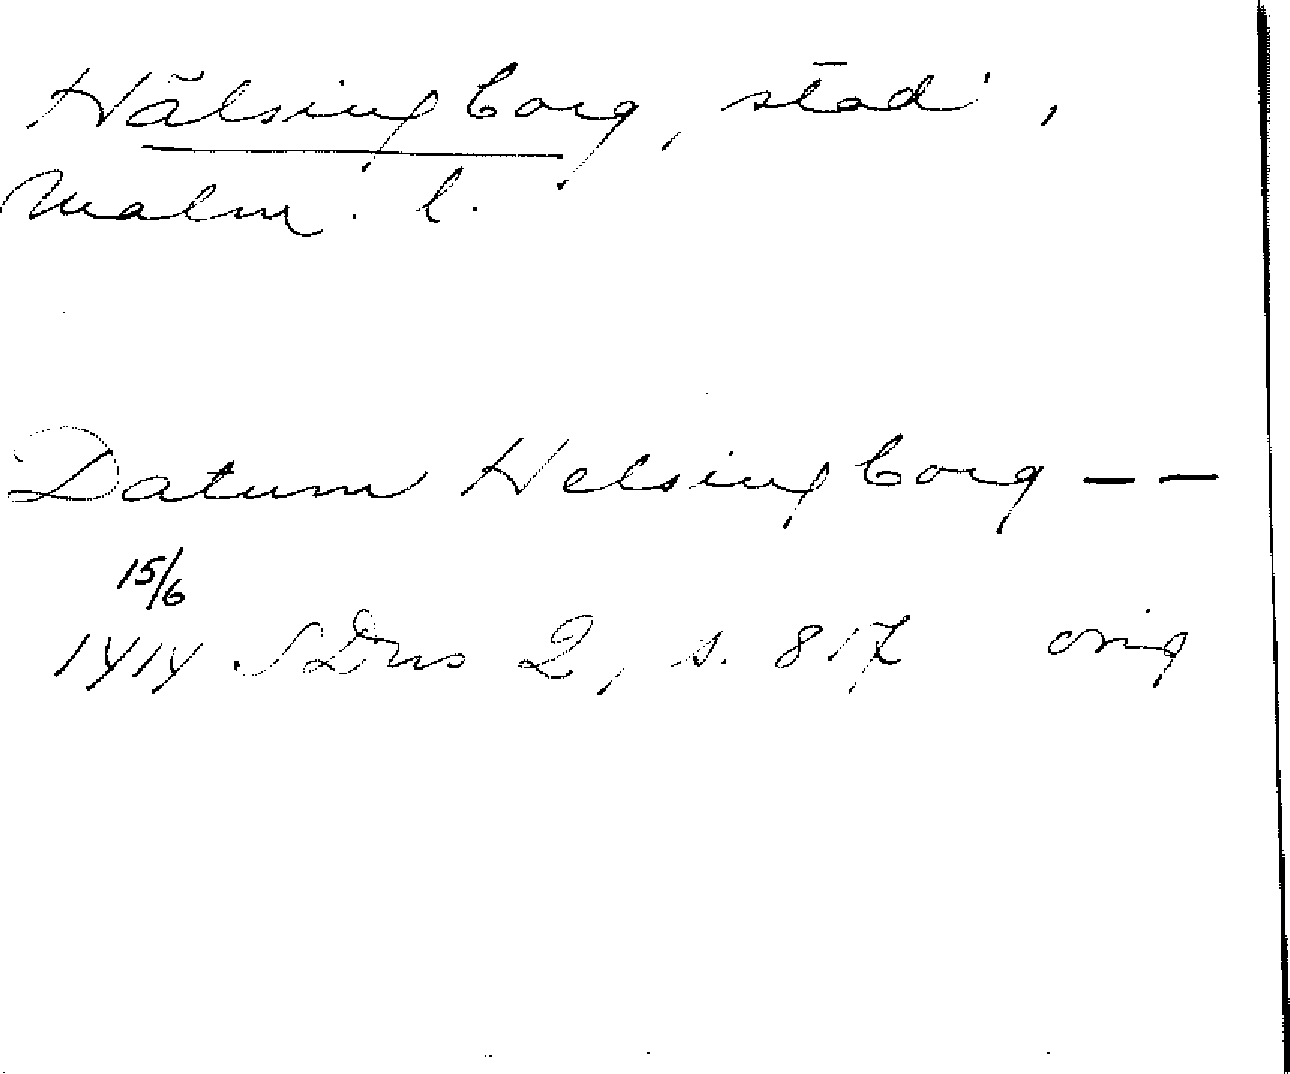 Hälsingborg, stad,
Malm. l.
Datum Helsingborg – –
15/6
1414 SDns 2, s. 817 orig